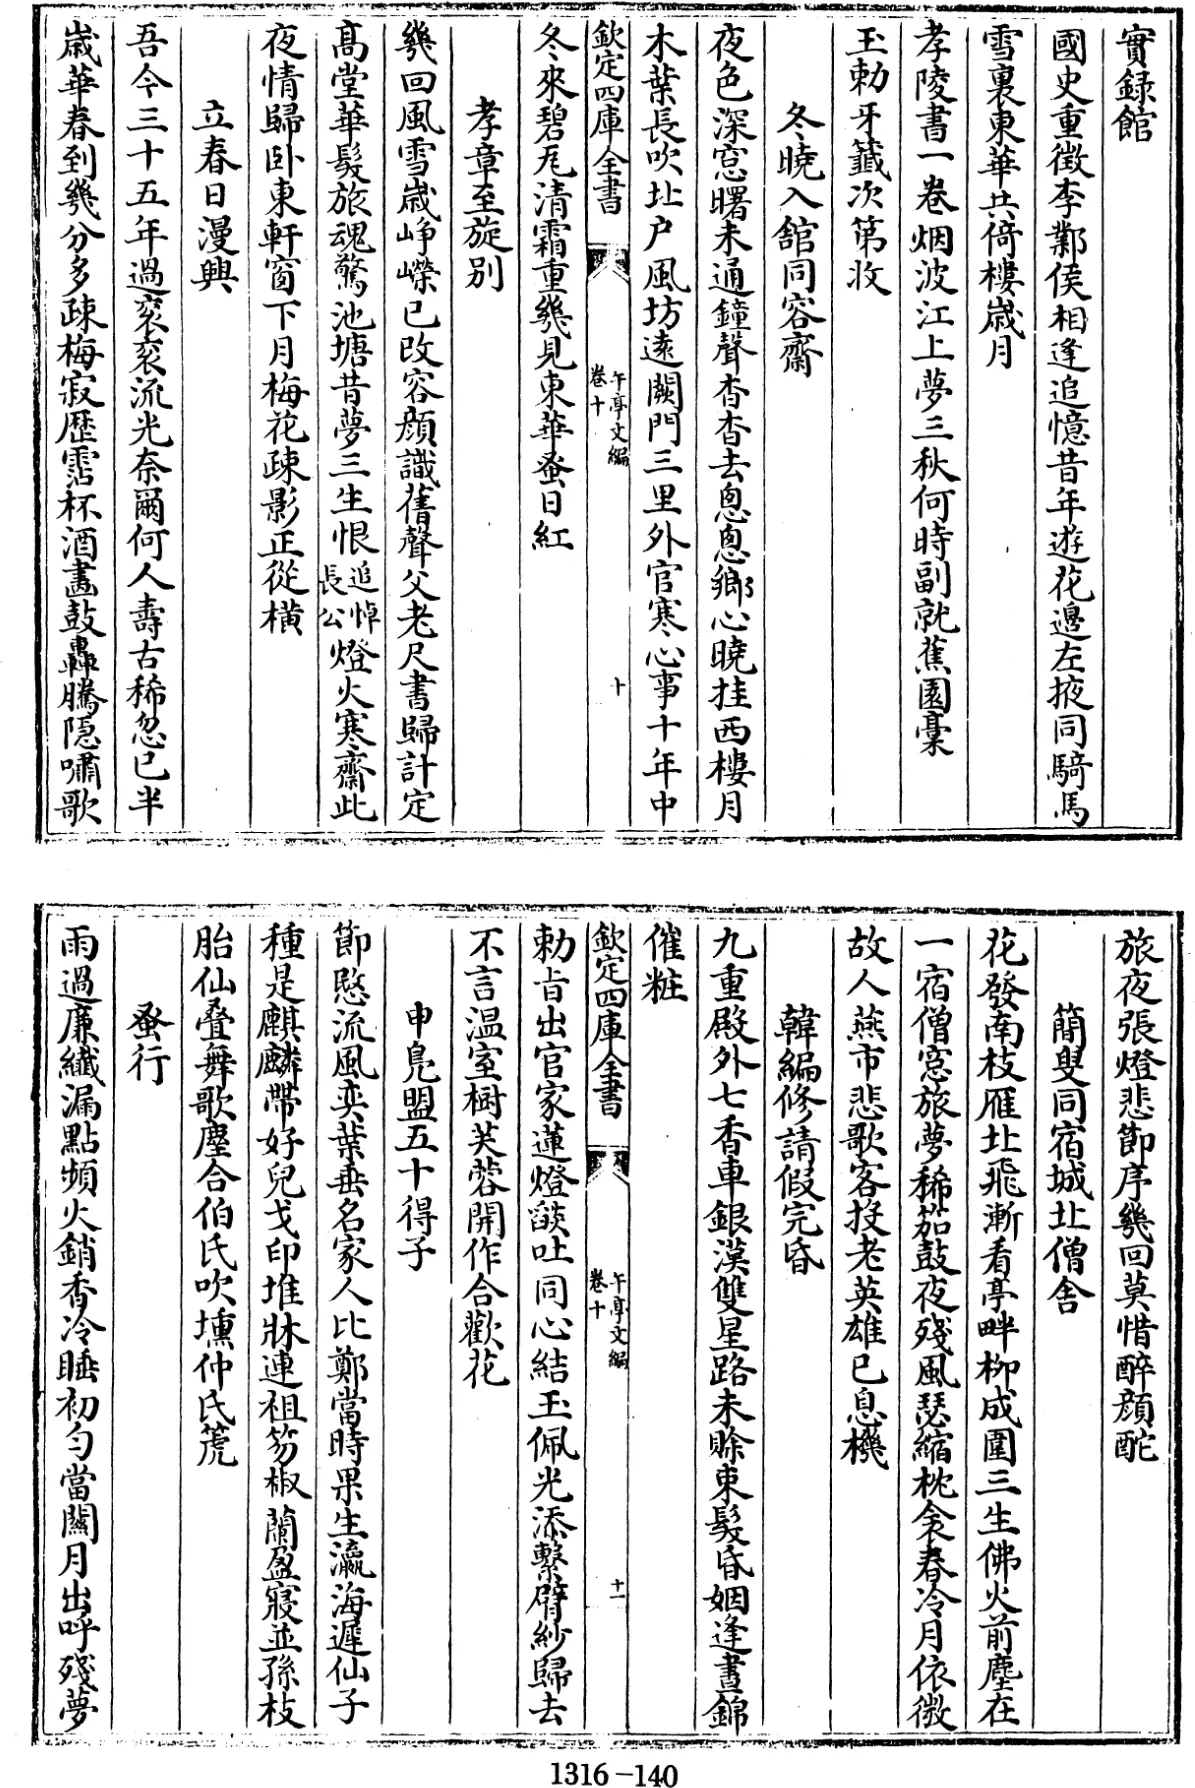 實録館
國史重徴李鄴侯相逢追憶昔年遊花邊左掖同騎馬
雪裏東華共倚樓歳月
孝陵書一卷烟波江上夢三秋何時副就蕉園藁
玉勅牙籖次第收
冬曉入館同容齋
夜色深窓曙未通鐘聲杳杳去悤悤鄉心曉挂西樓月
木葉長吹北户風坊逺闕門三里外官寒心事十年中
欽定四庫全書
午亭文編
卷十
十
冬來碧瓦清霜重幾見東華蚤日紅
孝章至旋别
幾回風雪歳崢嶸已改容顔識舊聲父老尺書歸計定
髙堂華髮旅魂驚池塘昔夢三生恨追悼長公燈火寒齋此
夜情歸卧東軒窗下月梅花疎影正從橫
立春日漫興
吾今三十五年過衮衮流光奈爾何人壽古稀忽已半
歳華春到幾分多疎梅寂歴霑杯酒畫鼓轟騰隠嘯歌
旅夜張燈悲節序幾回莫惜醉顔酡
簡叟同宿城北僧舍
花發南枝雁北飛漸看亭畔柳成圍三生佛火前塵在
一宿僧窓旅夢稀笳鼓夜殘風瑟縮枕衾春冷月依微
故人燕市悲歌客投老英雄已息機
韓編修請假完昏
九重殿外七香車銀漢雙星路未賖束髮昏姻逢晝錦
催粧
欽定四庫全書
午亭文編
卷十
十一
勅㫖出官家蓮燈燄吐同心結玉佩光添繫臂紗歸去
不言温室樹芙蓉開作合歡花
申鳬盟五十得子
節愍流風奕葉垂名家人比鄭當時果生瀛海遲仙子
種是麒麟帶好兒戈印堆牀連祖笏椒蘭盈寢並孫枝
胎仙疊舞歌塵合伯氏吹壎仲氏篪
蚤行
雨過㢘纎漏點頻火銷香冷睡初匀當關月出呼殘夢
1316-140